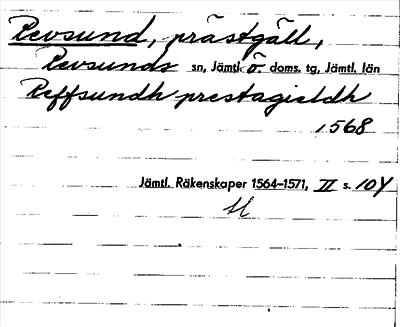 Revsund, prästgäll,
Revsunds sn, Jämtl. Ö. doms. tg, Jämtl. län
Reffsundh prestagieldh
1568
Jämtl. Räkenskaper 1564–1571, II s. 104